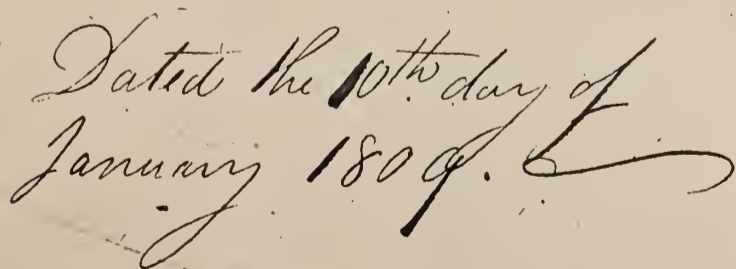 Dated the 10th day of
January 1809.